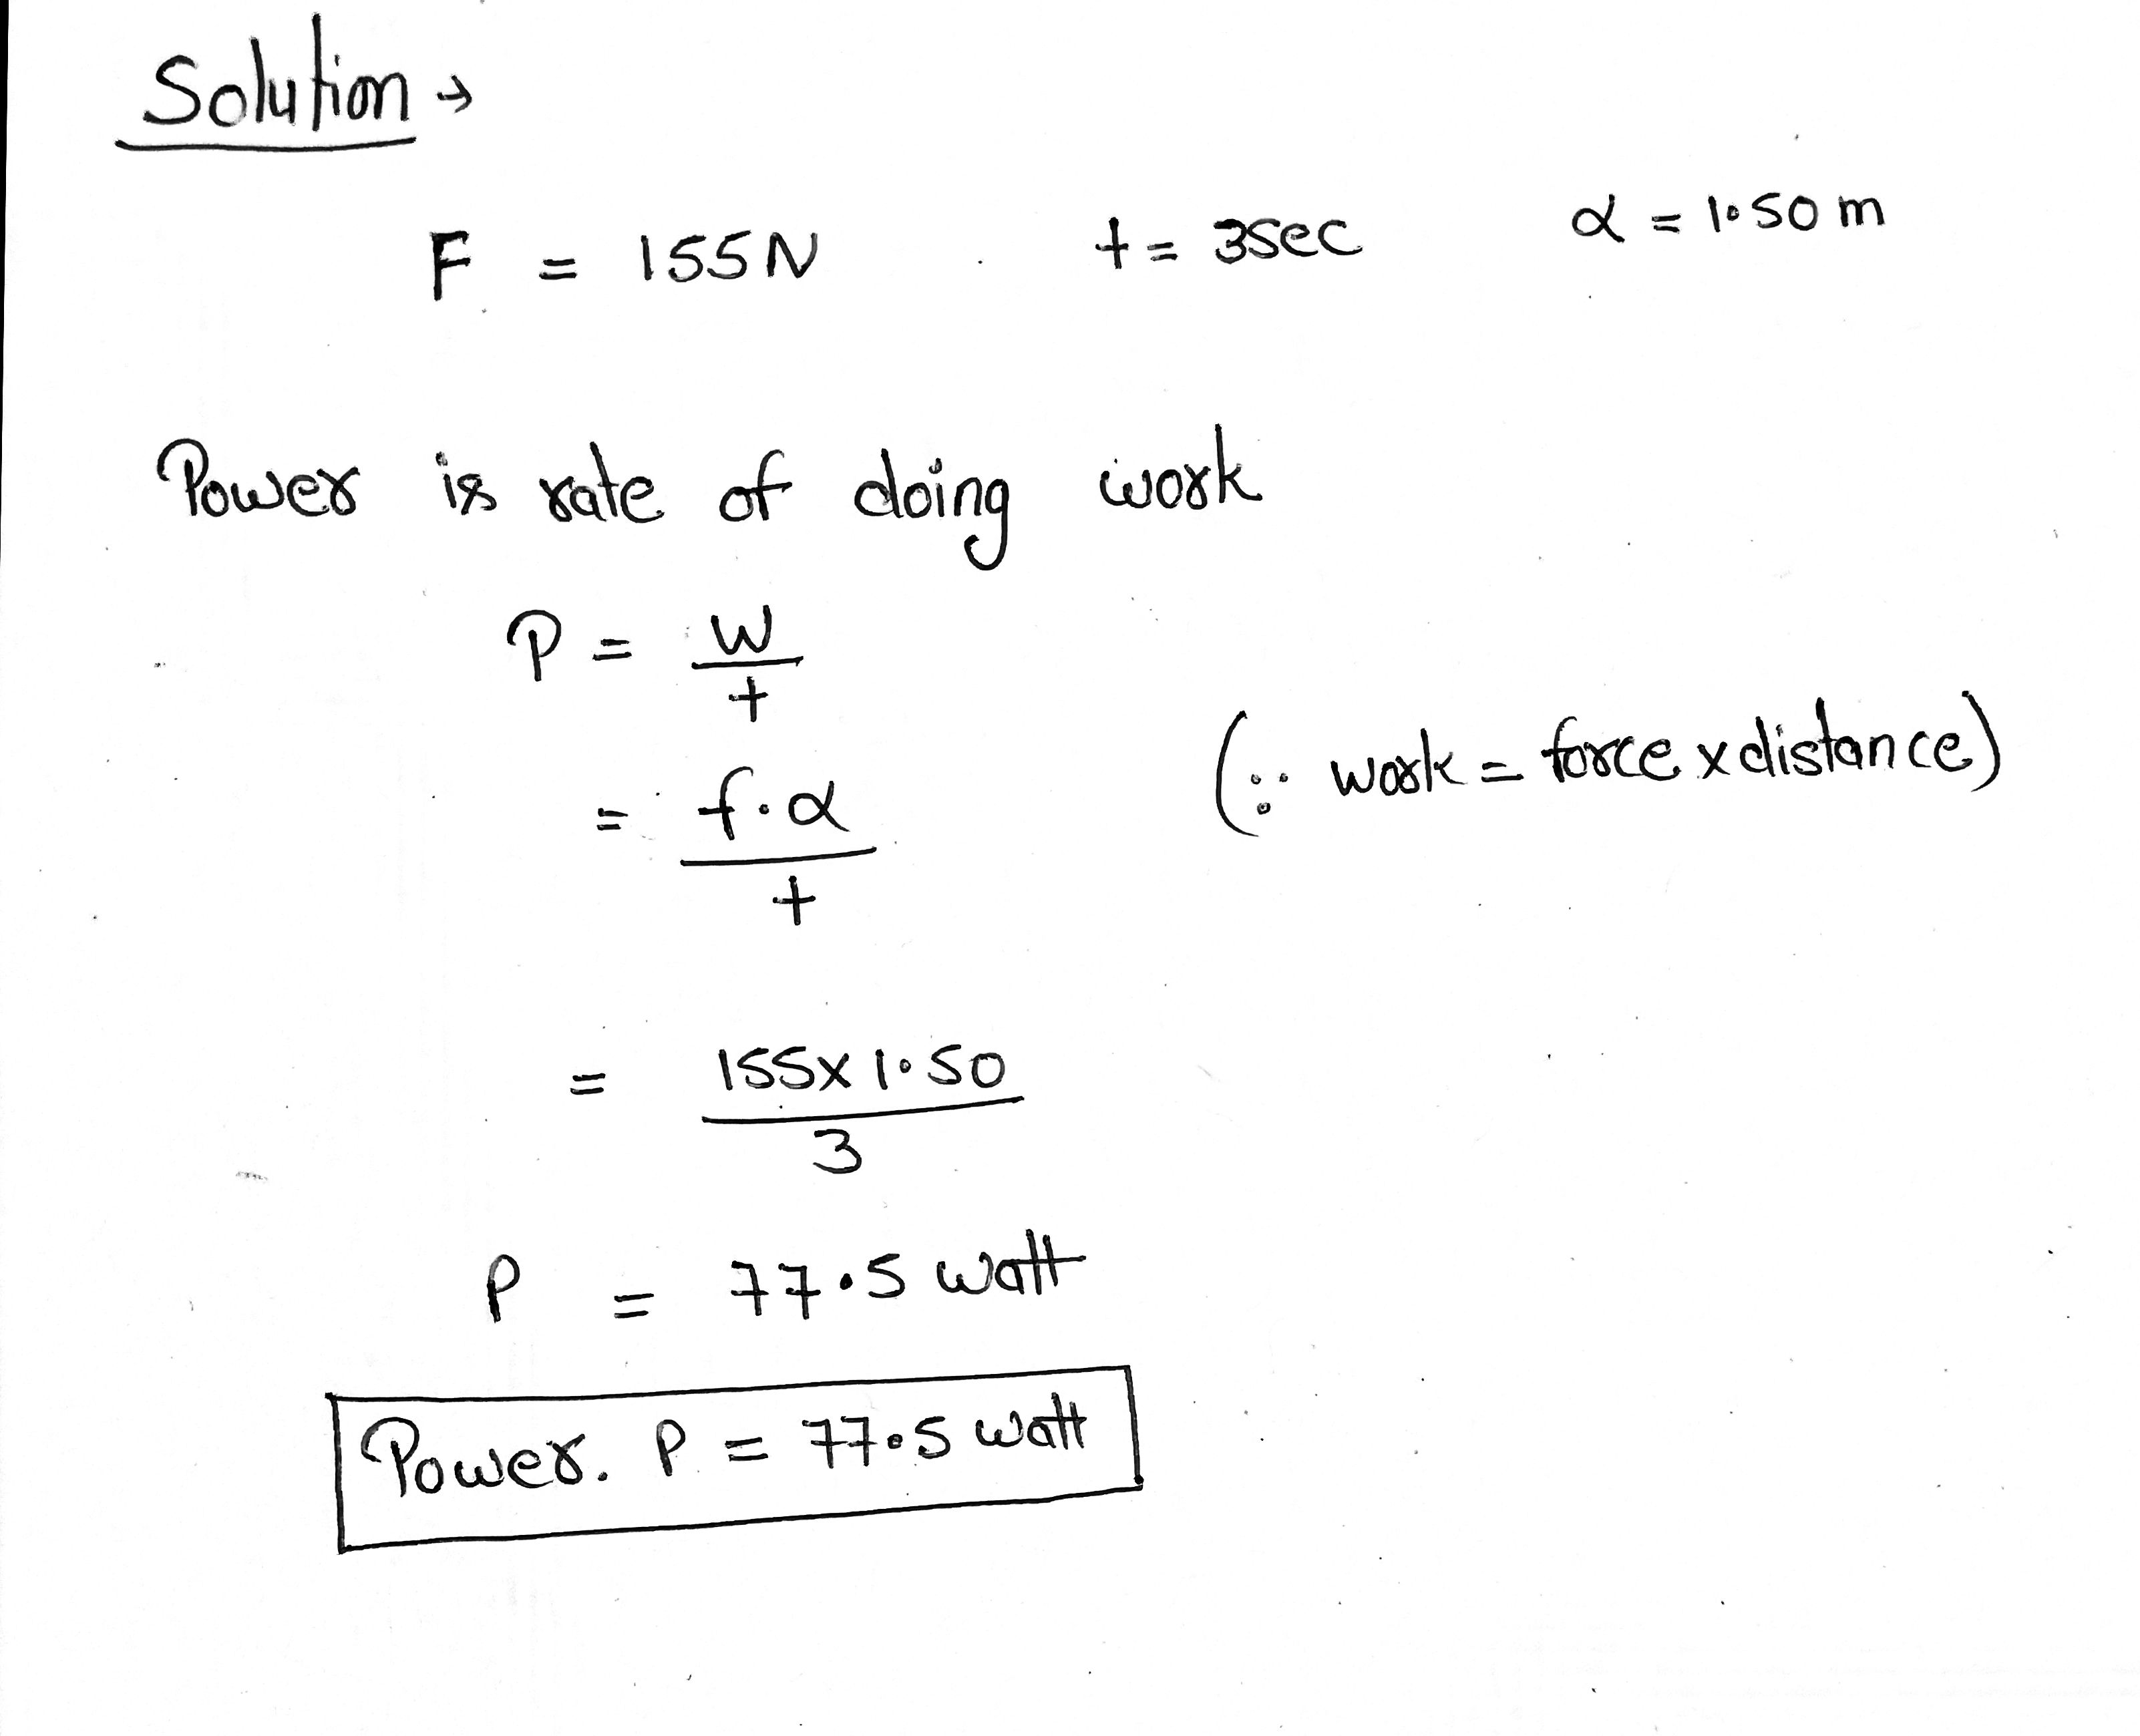 Solution →
F = 155N t = 3sec d = 1.50 m
Power is rate of doing work
P = W/t
= f.d/t (∵ work = force x distance)
= 155x1.50/3
P = 77.5 watt
Power. P = 77.5 watt